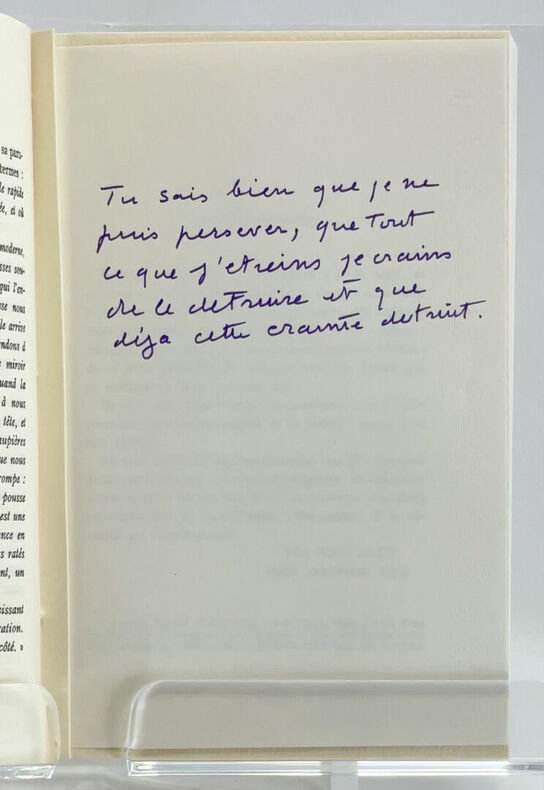 sa
termes :
le rapide
ée, et où
moderne,
sses sou-
qui l'en-
se nous
le arrive
ndons à
miroir
uand la
à nous
tête, et
upières
ue nous
rompe :
pousse
est une
nce en
s ratés
nt, un
issant
ation.
côté. »
Tu sais bien que je ne
puis persever, que tout
ce que j'etreins je crains
de le detruire et que
déja cette crainte detruit.